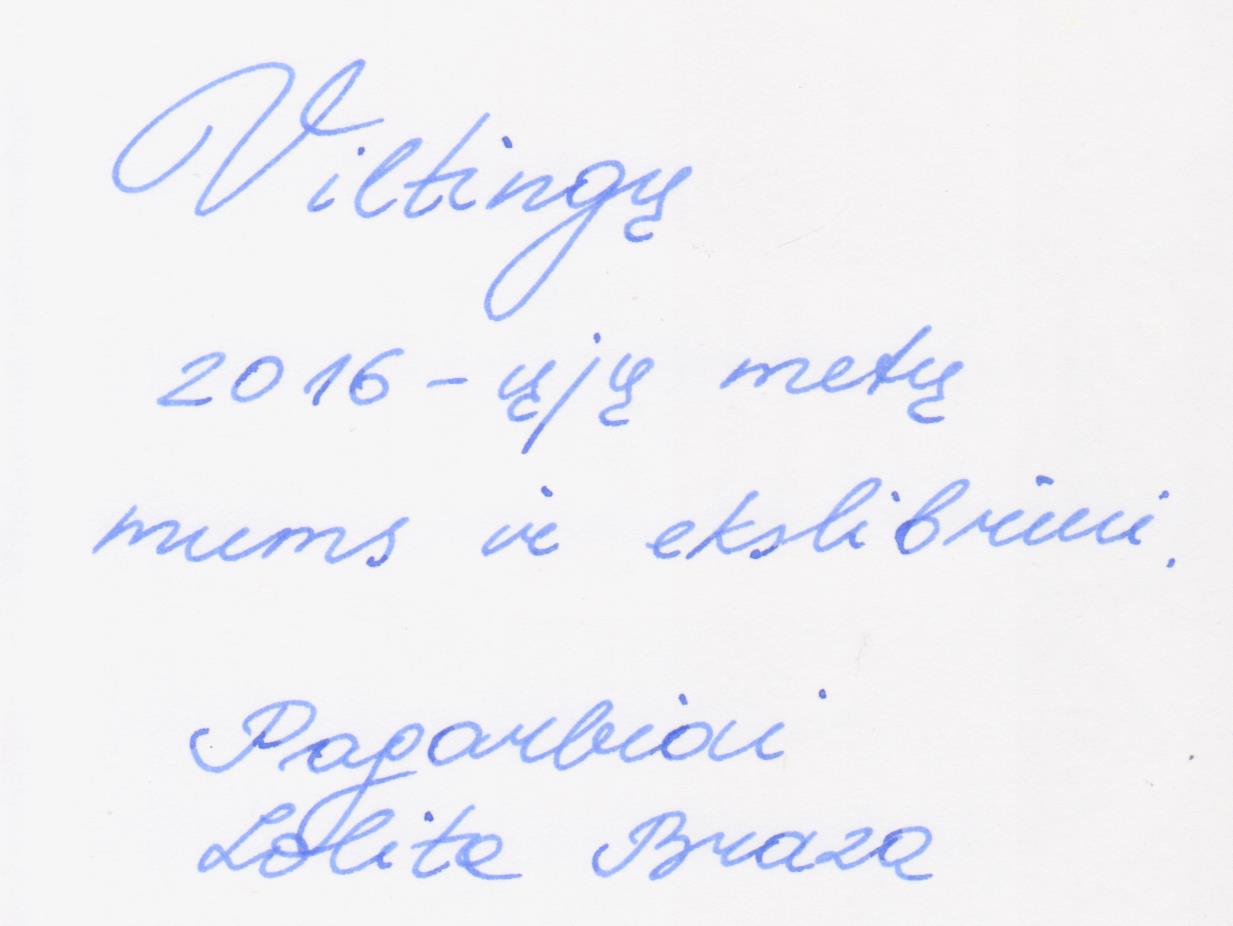 Viltingų
2016-ųjų metų
mums ir ekslibriui.
Pagarbiai
Lolita Braza